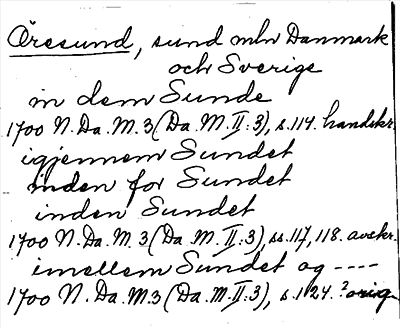 Öresund, sund mln Danmark
och Sverige
in dem Sunde
1700 N.Da.M.3 (Da.M.II:3), s.114. handskr.
igjennem Sundet
inden for Sundet
inden Sundet
1700 N.Da.M.3 (Da.M.II:3), ss.117, 118. avskr.
imellem Sundet og ----
1700 N.Da.M.3 (Da.M.II:3), s.124. ? orig.